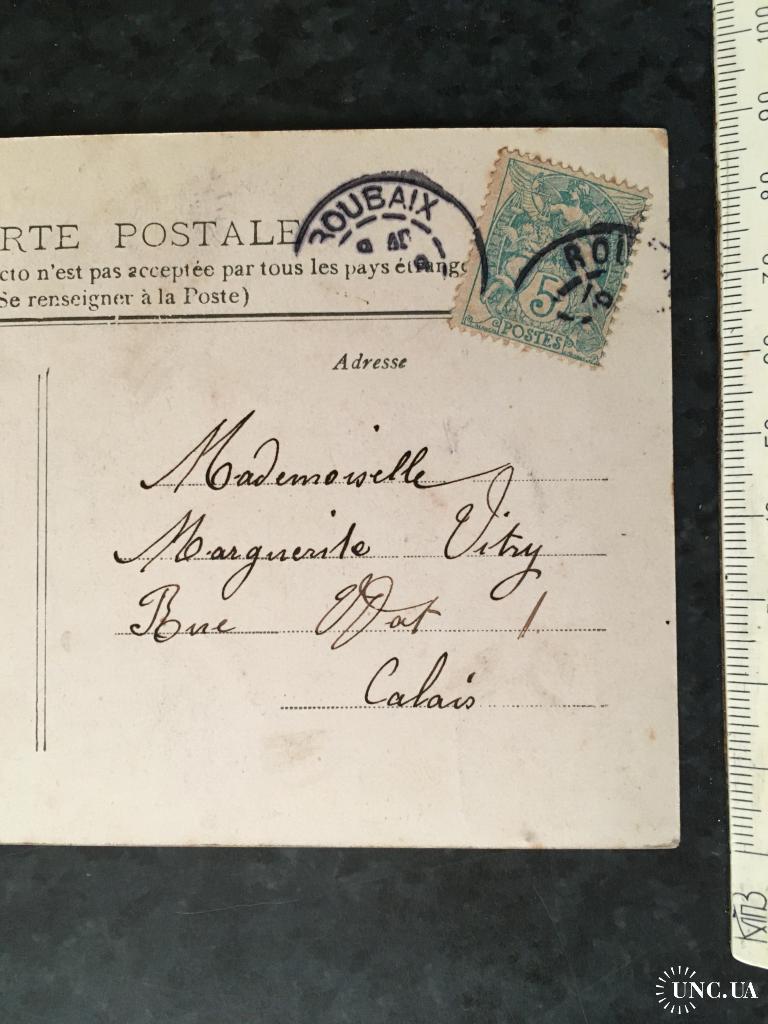 RTE POSTALE
cto n'est pas acceptée par tous les pays étrange
Se renseigner à la Poste)
ROUBAIX
ROU
5
POSTES
Adresse
Mademoiselle
Marguerite Vitry
Rue Wat 1
Calais
100
90
80
70
60
50
UNC.UA